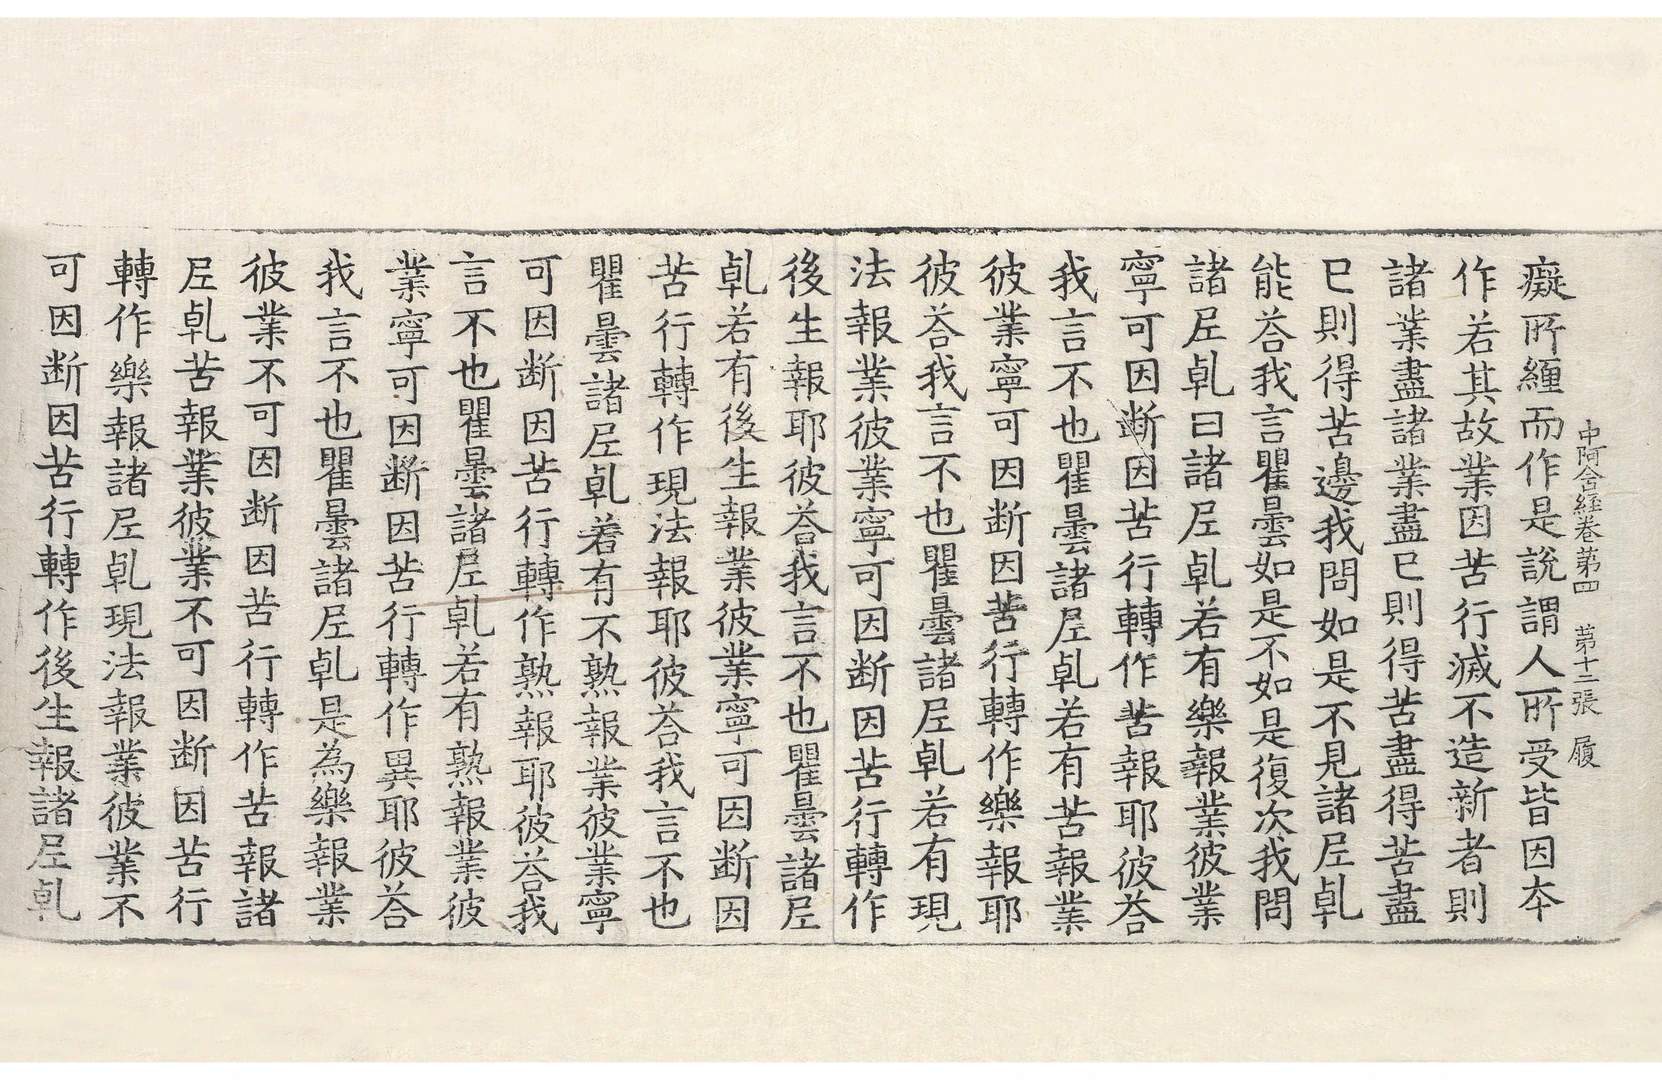 中阿含經卷第四 第十二張 履
癡所纏而作是說謂人所受皆因本
作若其故業因苦行滅不造新者則
諸業盡諸業盡已則得苦盡得苦盡
已則得苦邊我問如是不見諸尼乹
能荅我言瞿曇如是不如是復次我問
諸尼乹曰諸尼乹若有樂報業彼業
寧可因断因苦行轉作苦報耶彼荅
我言不也瞿曇諸尼乹若有苦報業
彼業寧可因断因苦行轉作樂報耶
彼荅我言不也瞿曇諸尼乹若有現
法報業彼業寧可因断因苦行轉作
後生報耶彼荅我言不也瞿曇諸尼
乹若有後生報業彼業寧可因断因
苦行轉作現法報耶彼荅我言不也
瞿曇諸尼乹若有不熟報業彼業寧
可因断因苦行轉作熟報耶彼荅我
言不也瞿曇諸尼乹若有熟報業彼
業寧可因断因苦行轉作異耶彼荅
我言不也瞿曇諸尼乹是為樂報業
彼業不可因断因苦行轉作苦報諸
尼乹苦報業彼業不可因断因苦行
轉作樂報諸尼乹現法報業彼業不
可因断因苦行轉作後生報諸尼乹